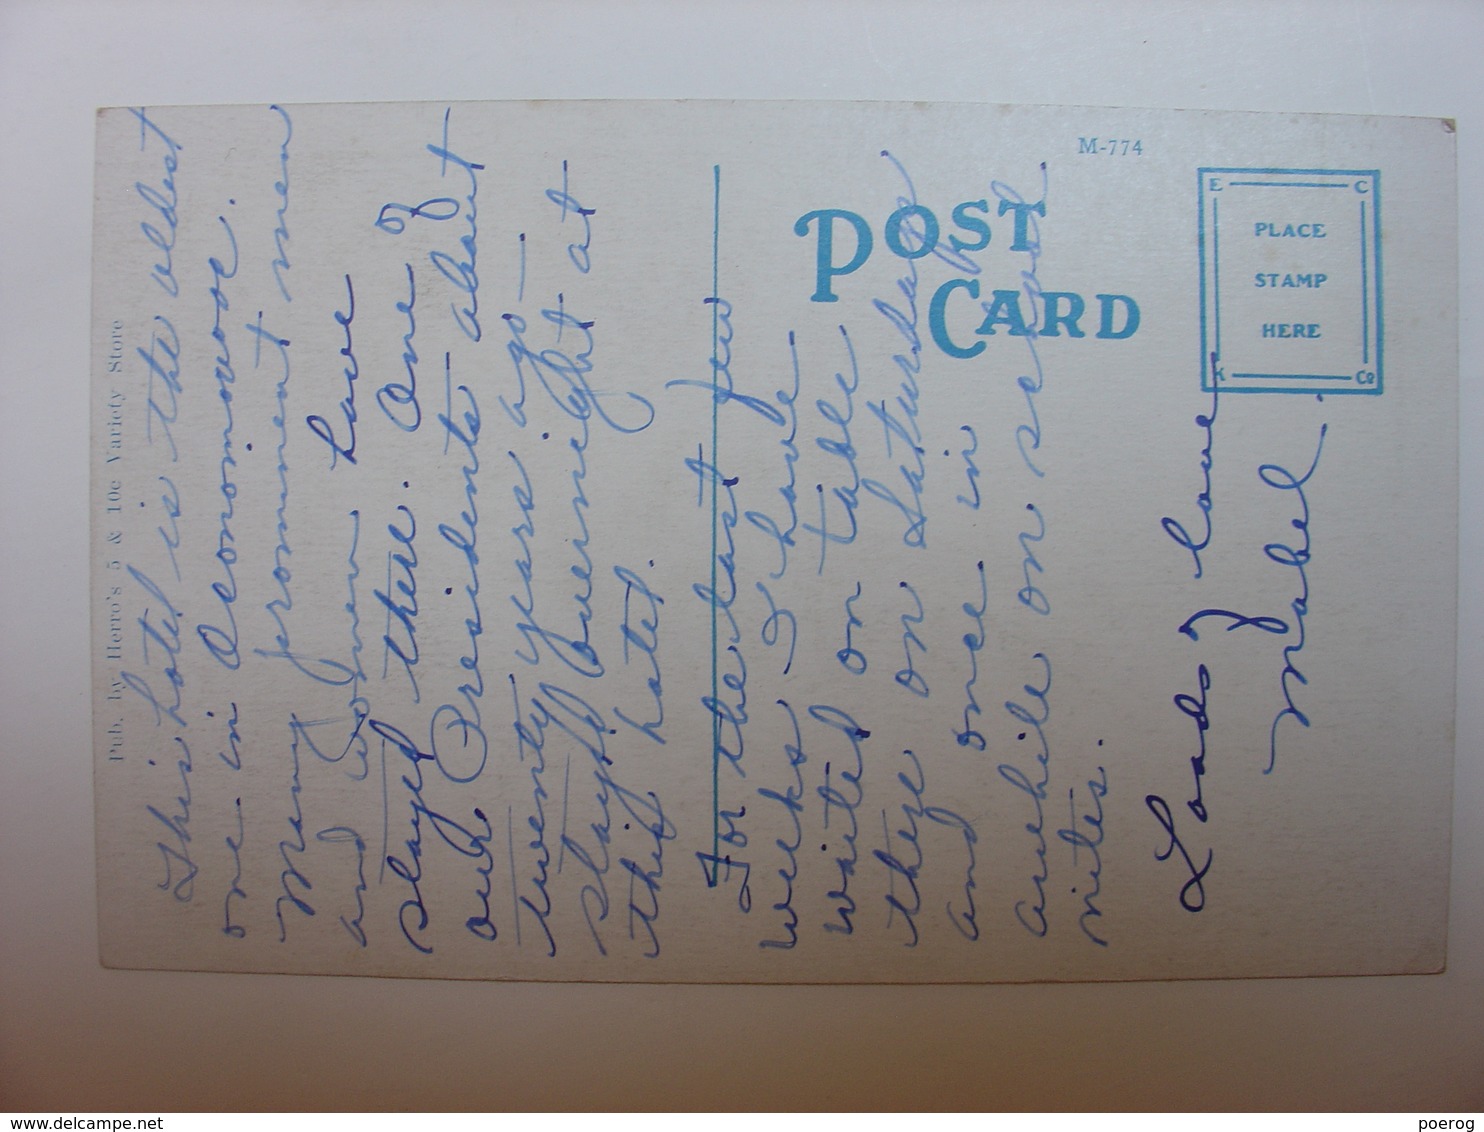 Pub. by Herro's 5 & 10c Variety Store
This hotel is the oldest
one in Oconomowoc.
Many prominent men
and women have
stayed there. One of
our Presidents about
twenty years ago
stayed overnight at
this hotel.
For the last few
weeks I have
waited on table
there on Saturdays
and once in
awhile on school
nites.
Loads of love,
Mabel.
M-774
POST
CARD
E C
PLACE
STAMP
HERE
K Co
delcampe.net
poerog